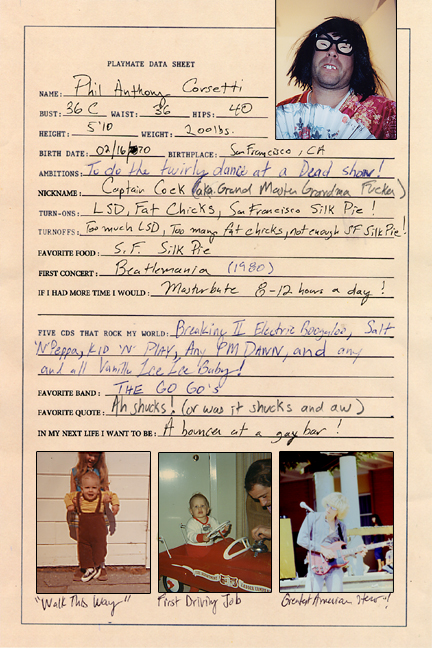 PLAYMATE DATA SHEET
NAME: Phil Anthony Corsetti
BUST: 36 C WAIST: 36 HIPS: 40
HEIGHT: 5'10 WEIGHT: 200lbs.
BIRTH DATE: 02/16/70 BIRTHPLACE: San Francisco, CA
AMBITIONS: To do the twirly dance at a Dead show!
NICKNAME: Captain Cock (aka Grand Master Grandma Fucker)
TURN-ONS: LSD, Fat Chicks, San Francisco Silk Pie!
TURNOFFS: Too much LSD, Too many fat chicks, not enough SF Silk Pie!
FAVORITE FOOD: S.F. Silk Pie
FIRST CONCERT: Beatlemania (1980)
IF I HAD MORE TIME I WOULD: Masturbate 8-12 hours a day!
FIVE CDS THAT ROCK MY WORLD: Breaking II Electric Boogaloo, Salt
'N' Peppa, KID 'N' PLAY, Any PM DAWN, and any
and all Vanilla Ice Ice Baby!
FAVORITE BAND: THE GO GO's
FAVORITE QUOTE: Ah shucks! (or was it shucks and aw)
IN MY NEXT LIFE I WANT TO BE: A bouncer at a gay bar!
"Walk This Way" First Driving Job Greatest American Hero!